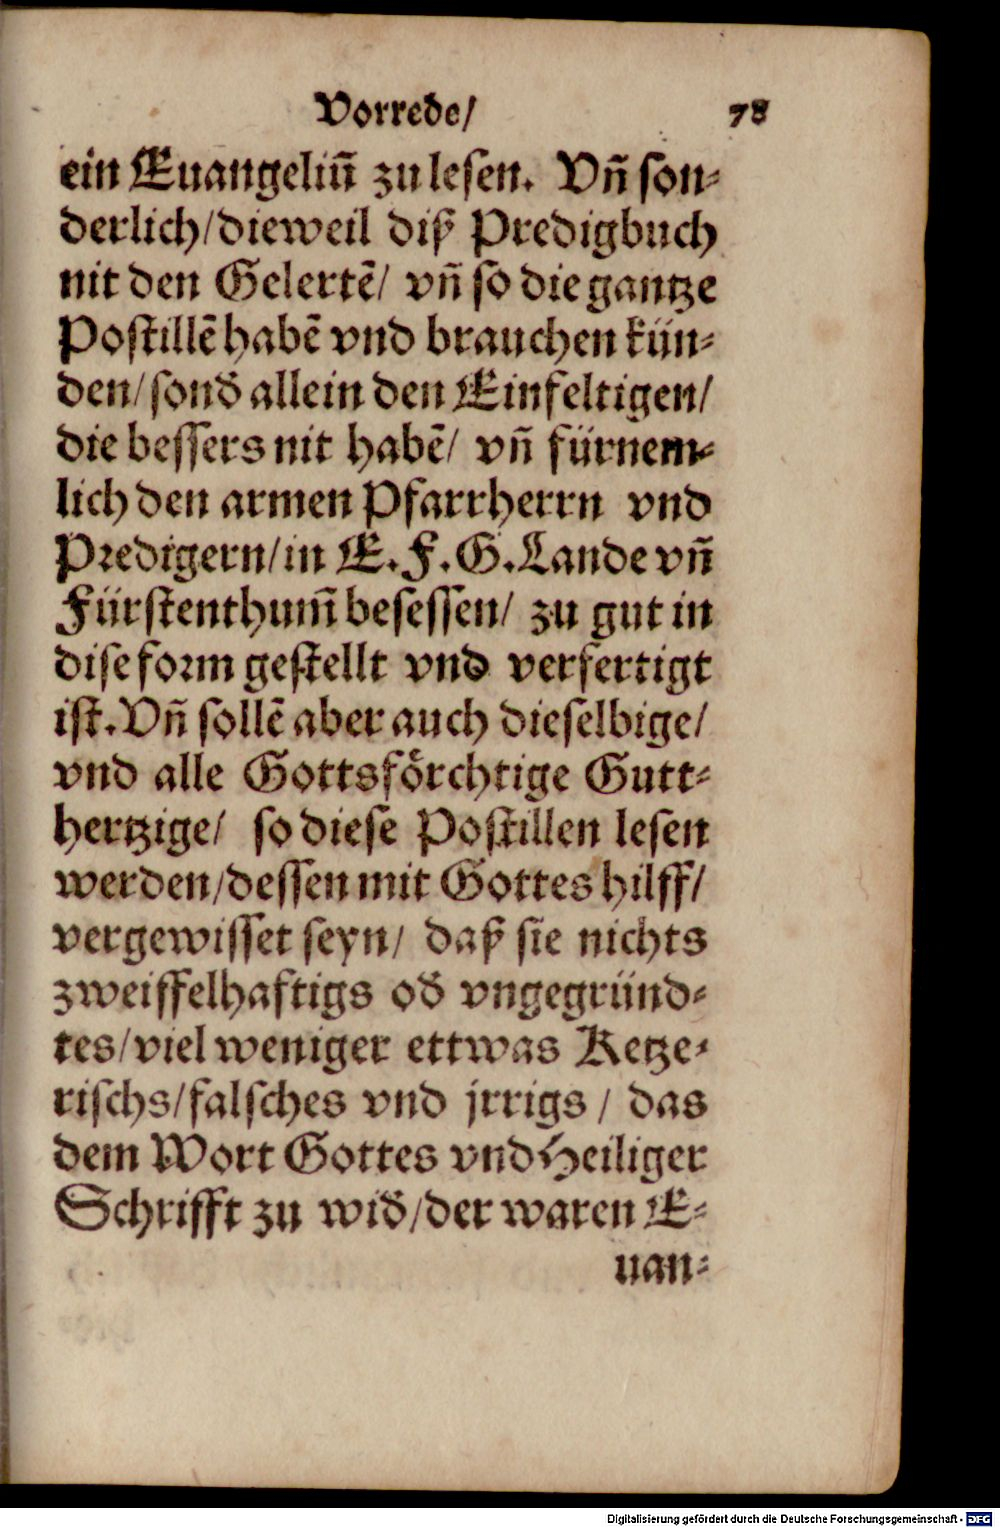 Vorrede/ 78
ein Euangeliũ zu lesen. Vñ son-
derlich/dieweil diß Predigbuch
nit den Gelertẽ/ vñ so die gantze
Postillẽ habẽ vnd brauchen kün-
den/sonđ allein den Einfeltigen/
die bessers nit habẽ/ vñ fürnem-
lich den armen Pfarrherrn vnd
Predigern/in E.F.G.Lande vñ
Fürstenthum̃ besessen/ zu gut in
dise form gestellt vnd verfertigt
ist.Vñ sollẽ aber auch dieselbige/
vnd alle Gottsförchtige Gutt-
hertzige/ so diese Postillen lesen
werden/dessen mit Gottes hilff/
vergewisset seyn/ daß sie nichts
zweiffelhaftigs ođ vngegründ-
tes/viel weniger ettwas Ketze-
rischs/falsches vnd jrrigs / das
dem Wort Gottes vnd Heiliger
Schrifft zu wiđ/der waren E-
uan-
Digitalisierung gefördert durch die Deutsche Forschungsgemeinschaft - DFG